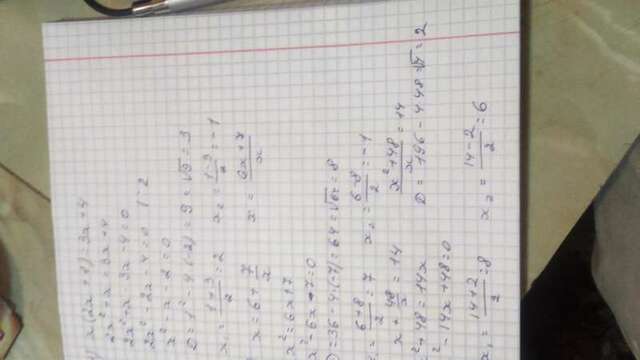 x(2x+1)=3x+4
2x²+x=3x+4
2x²+x-3x-4=0
2x²-2x-4=0 |:2
x²-x-2=0
D=1²-4·(-2)=9=√9=3
x₁=(1+3)/2=2 x₂=(1-3)/2=-1
x=6+7/x x=(6x+7)/x
x²=6x+7
x²-6x-7=0
D=36-4·(-7)=64=√64=8
(6+8)/2=7 x₂=(6-8)/2=-1
x+48/x=14 (x²+48)/x=14
²+48=14x D=196-4·48=√4=2
²-14x+48=0
x₁=(14+2)/2=8 x₂=(14-2)/2=6